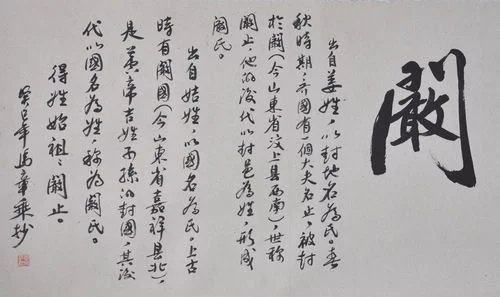 闞
出自姜姓，以封地名為氏。春
秋時期，齐國有一個大夫名止，被封
於闞(今山東省汶上县西南)，世称
闞止，他的後代以封邑為姓，形成
闞氏。
出自姞姓，以國名為氏。上古
時有闞國(今山東省嘉祥县北)，
是黄帝吉姓子孫的封國，其後
代以國名為姓，称為闞氏。
得姓始祖：闞止。
癸巳年馮章乘抄